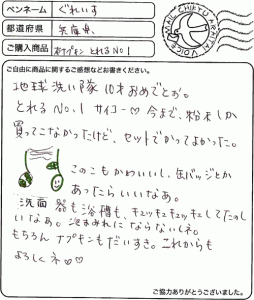 ペンネーム ぐれいす
都道府県 兵庫県
ご購入商品 布ナプキン とれるNo1
MAIL CHIKYU ARAITAI VOICE
ご自由に商品に関するご感想などお書きください。
地球洗い隊 10才おめでとお。
とれるNo.1 サイコー♡ 今まで、粉末しか
買ってこなかったけど、セットでかってよかった。
このこもかわいいし、缶バッジとか
あったらいいなあ。
洗面器も浴槽も、キュッキュッキュッキュしてたのし
いなぁ。泡まみれにならないしネ。
もちろんナプキンもだいすき。これからも
よろしくネ♡♡
ご協力ありがとうございました。